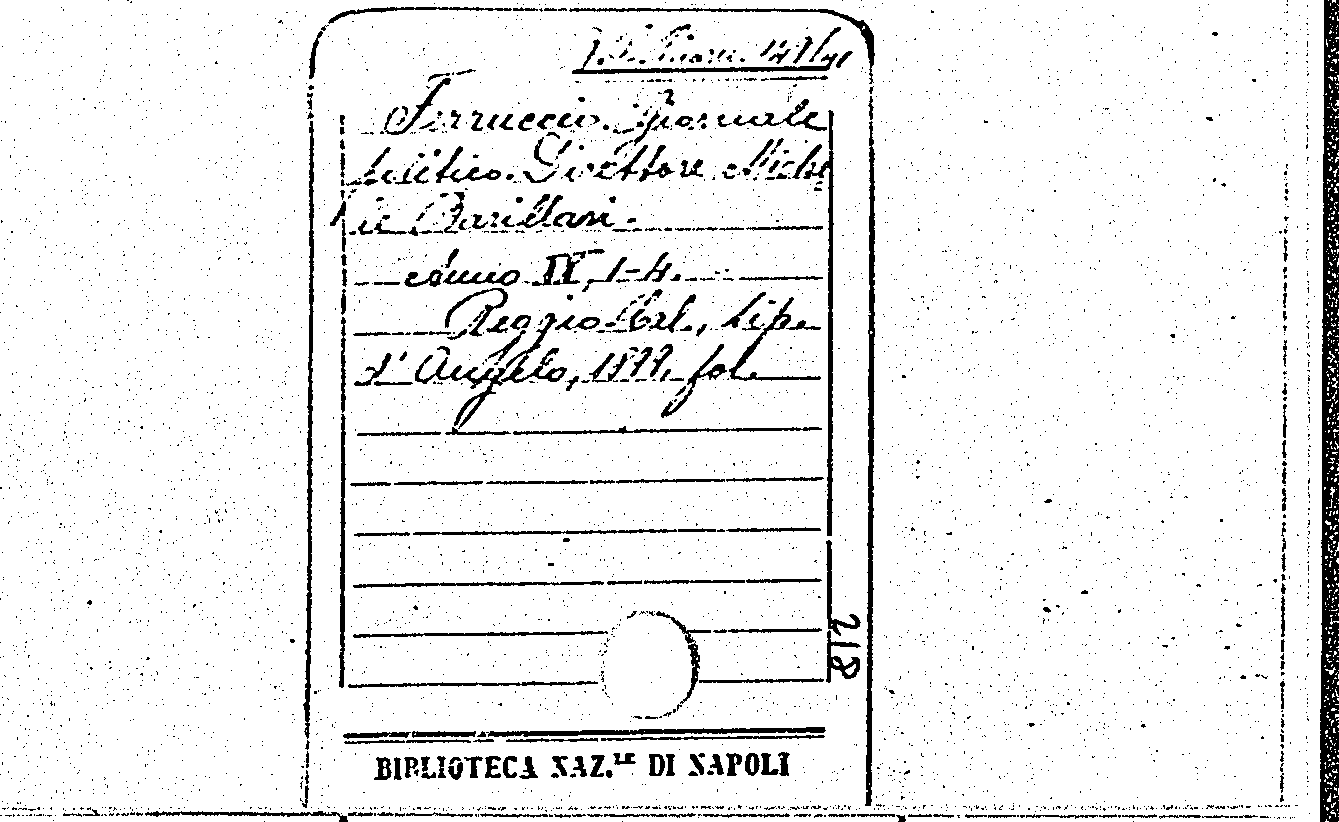 Ferruccio. Giornale
politico. Direttore Miche
le Barillari.
Anno IV, 1-4.
Reggio Cal., Tip.
D'Angelo, 1899, fol.
218
BIBLIOTECA NAZ.LE DI NAPOLI